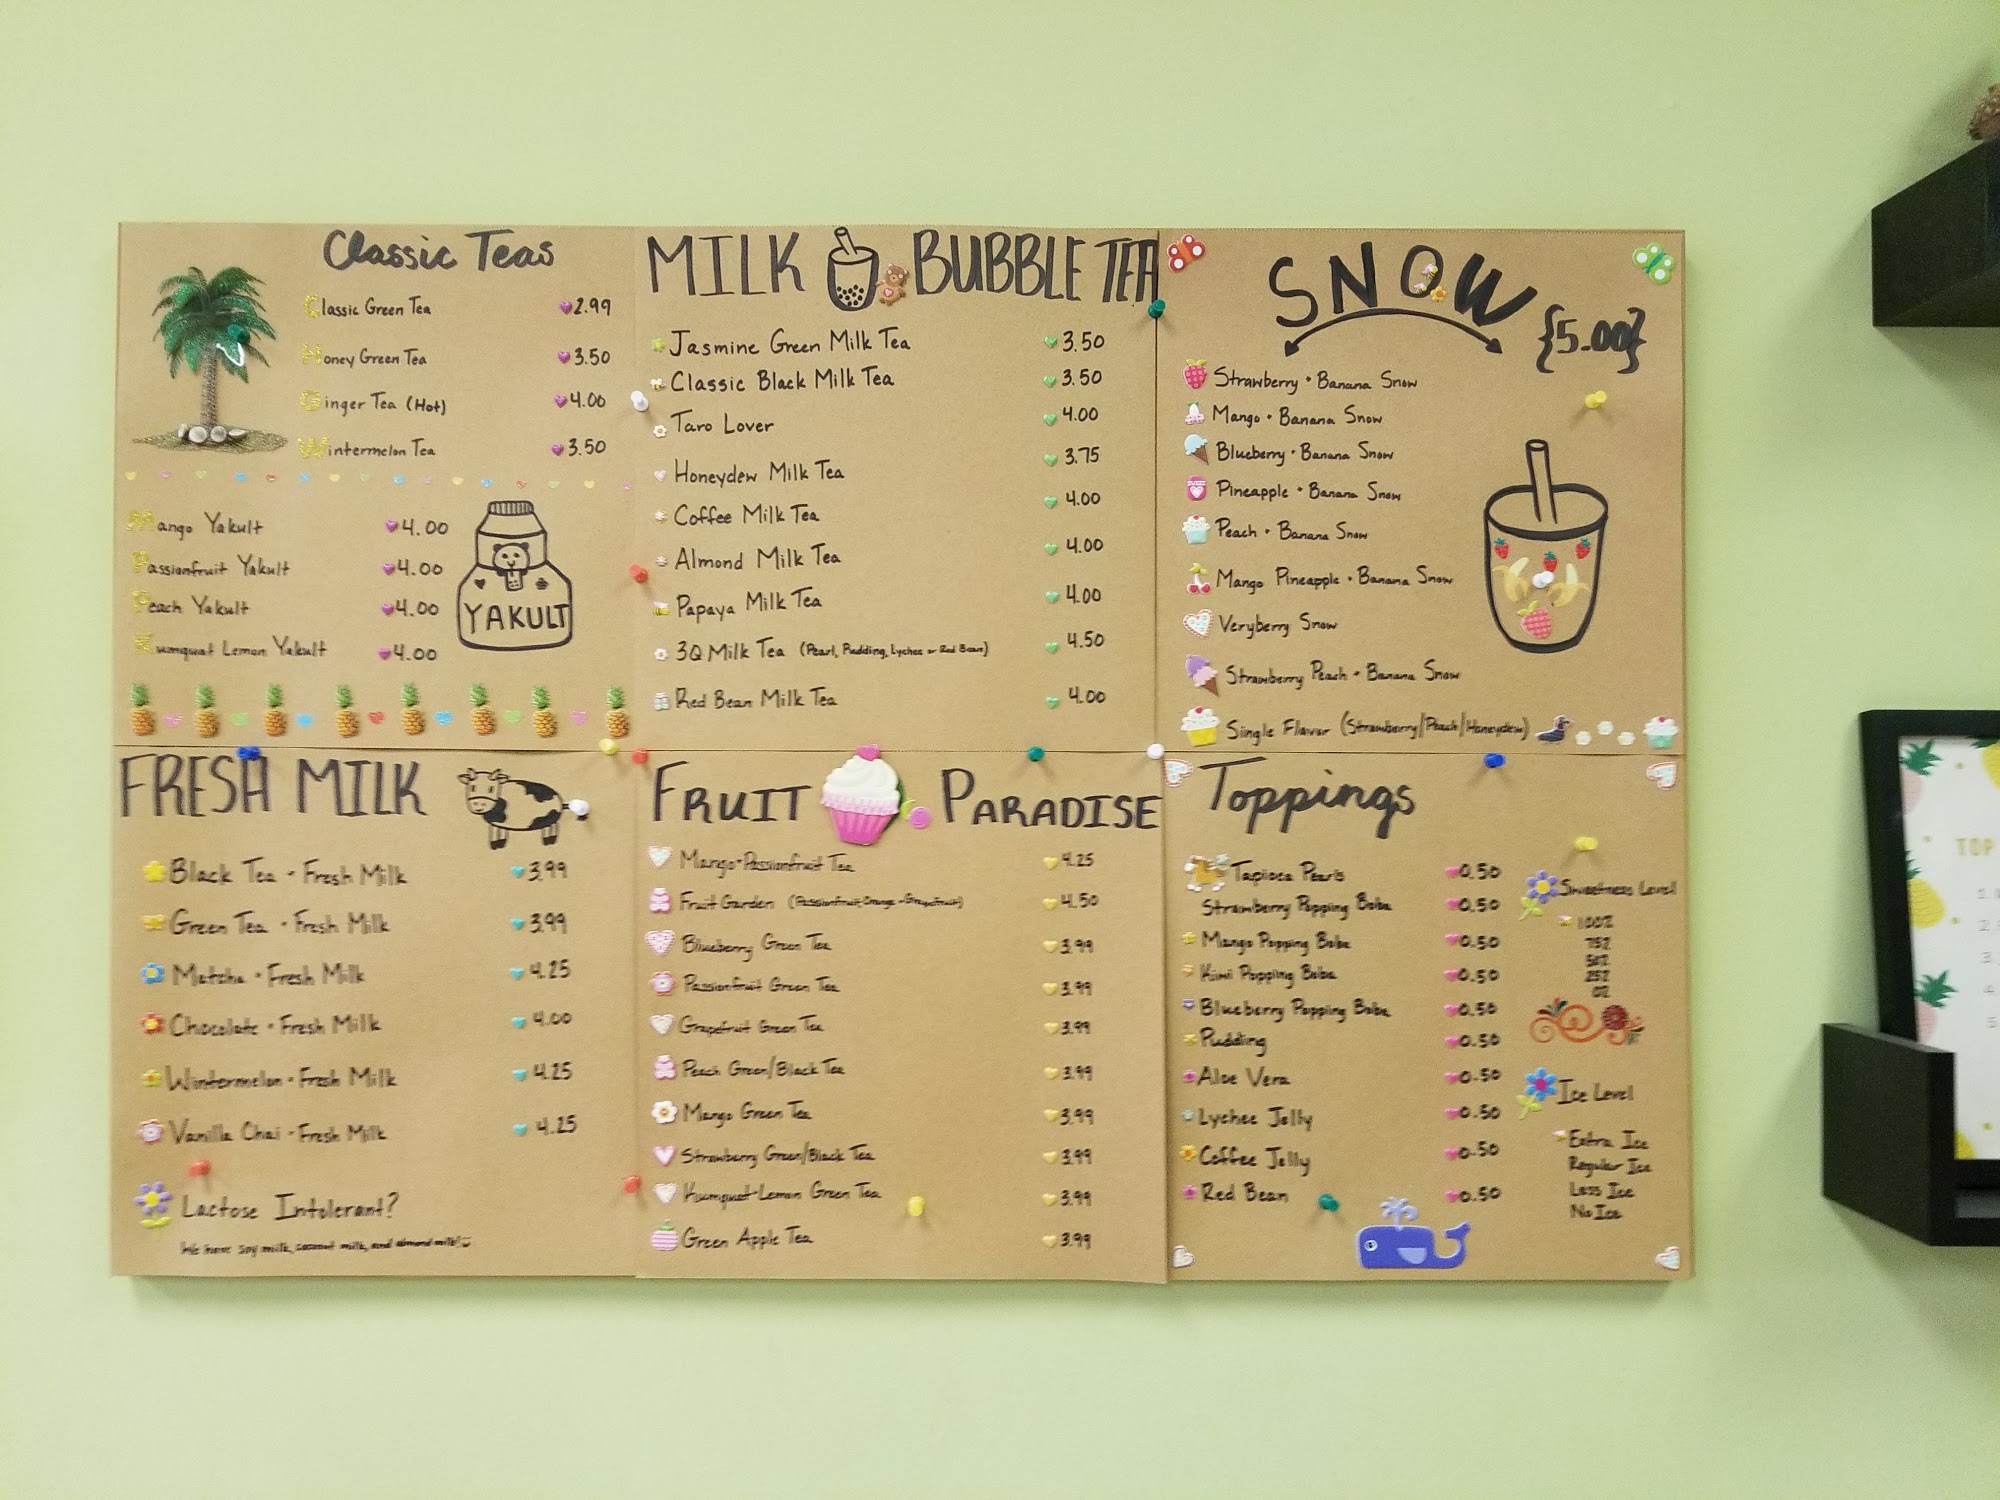 Classic Teas
Classic Green Tea 2.99
Honey Green Tea 3.50
Ginger Tea (Hot) 4.00
Wintermelon Tea 3.50
Mango Yakult 4.00
Passionfruit Yakult 4.00
Peach Yakult 4.00
Kumquat Lemon Yakult 4.00
YAKULT
MILK BUBBLE TEA
Jasmine Green Milk Tea 3.50
Classic Black Milk Tea 3.50
Taro Lover 4.00
Honeydew Milk Tea 3.75
Coffee Milk Tea 4.00
Almond Milk Tea 4.00
Papaya Milk Tea 4.00
3Q Milk Tea (Pearl, Pudding, Lychee or Red Bean) 4.50
Red Bean Milk Tea 4.00
SNOW {5.00}
Strawberry • Banana Snow
Mango • Banana Snow
Blueberry • Banana Snow
Pineapple • Banana Snow
Peach • Banana Snow
Mango Pineapple • Banana Snow
Veryberry Snow
Strawberry Peach • Banana Snow
Single Flavor (Strawberry/Peach/Honeydew)
FRESH MILK
Black Tea • Fresh Milk 3.99
Green Tea • Fresh Milk 3.99
Matcha • Fresh Milk 4.25
Chocolate • Fresh Milk 4.00
Wintermelon • Fresh Milk 4.25
Vanilla Chai • Fresh Milk 4.25
Lactose Intolerant?
We have soy milk, coconut milk, and almond milk!
FRUIT PARADISE
Mango•Passionfruit Tea 4.25
Fruit Garden (Passionfruit, Orange • Grapefruit) 4.50
Blueberry Green Tea 3.99
Passionfruit Green Tea 3.99
Grapefruit Green Tea 3.99
Peach Green/Black Tea 3.99
Mango Green Tea 3.99
Strawberry Green/Black Tea 3.99
Kumquat-Lemon Green Tea 3.99
Green Apple Tea 3.99
Toppings
Tapioca Pearls 0.50
Strawberry Popping Boba 0.50
Mango Popping Boba 0.50
Kiwi Popping Boba 0.50
Blueberry Popping Boba 0.50
Pudding 0.50
Aloe Vera 0.50
Lychee Jelly 0.50
Coffee Jelly 0.50
Red Bean 0.50
Sweetness Level
100%
75%
50%
25%
0%
Ice Level
Extra Ice
Regular Ice
Less Ice
No Ice
TOP
1.
2.
3.
4.
5.